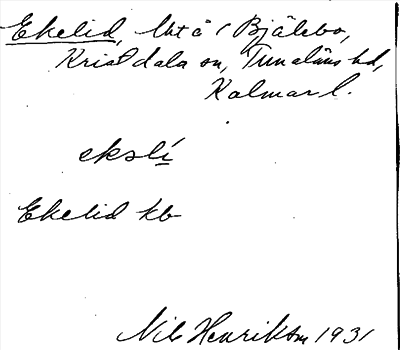 Ekelid, Ut å i Bjälebo,
Kristdala sn, Tunaläns hd,
Kalmar l.
ekslí
Ekelid kb
Nils Henrikson 1931